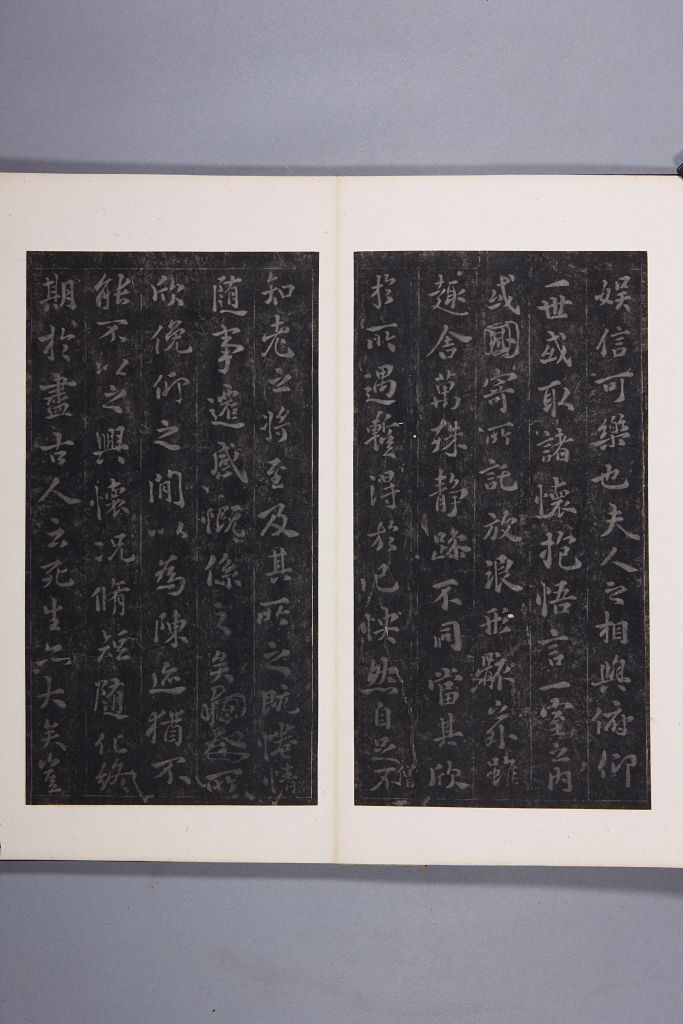 娛信可樂也夫人之相與俯仰
一世或取諸懷抱悟言一室之內
或因寄所託放浪形骸之外雖
趣舍萬殊靜躁不同當其欣
於所遇暫得於己快然自足不
僧
知老之將至及其所之既惓情
隨事遷感慨係之矣向之所
欣俛仰之間以為陳迹猶不
能不以之興懷況脩短隨化終
期於盡古人云死生亦大矣豈